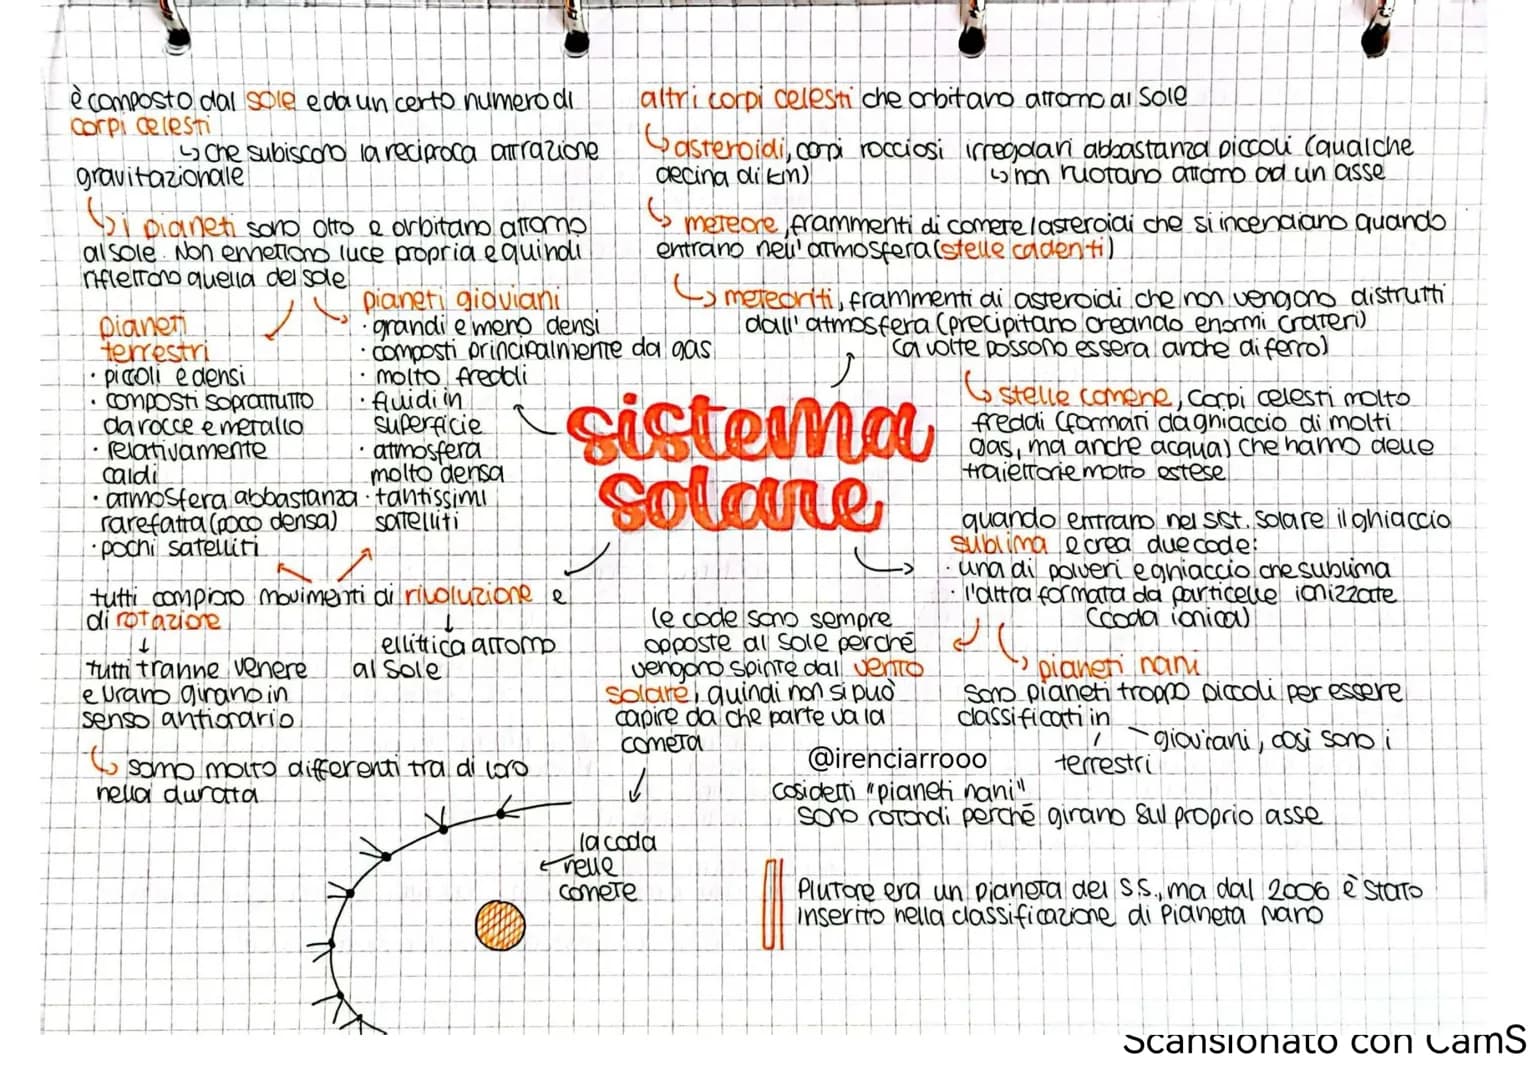 è composto dal sole e da un certo numero di
corpi celesti
↳ che subiscono la reciproca attrazione
gravitazionale
↳ i pianeti sono otto e orbitano attorno
al sole. Non emettono luce propria e quindi
riflettono quella del sole
pianeti
terrestri
· piccoli e densi
· composti soprattutto
da rocce e metallo
· relativamente
caldi
· atmosfera abbastanza
rarefatta (poco densa)
· pochi satelliti
pianeti gioviani
· grandi e meno densi
· composti principalmente da gas
· molto freddi
· fluidi in
superficie
· atmosfera
molto densa
· tantissimi
satelliti
tutti compiono movimenti di rivoluzione e
di rotazione
ellittica attorno
al Sole
tutti tranne venere
e urano girano in
senso antiorario
↳ sono molto differenti tra di loro
nella durata
sistema
solare
altri corpi celesti che orbitano attorno al Sole
↳ asteroidi, corpi rocciosi irregolari abbastanza piccoli (qualche
decina di km)
↳ non ruotano attorno ad un asse
↳ meteore, frammenti di comete/asteroidi che si incendiano quando
entrano nell'atmosfera (stelle cadenti)
↳ meteoriti, frammenti di asteroidi che non vengono distrutti
dall'atmosfera (precipitano creando enormi crateri)
(a volte possono essera anche di ferro)
↳ stelle comene, corpi celesti molto
freddi (formati da ghiaccio di molti
gas, ma anche acqua) che hanno delle
traiettorie molto estese
quando entrano nel sist. Solare il ghiaccio
sublima e crea due code:
· una di polveri e ghiaccio che sublima
· l'altra formata da particelle ionizzate
(coda ionica)
le code sono sempre
opposte al Sole perché
vengono spinte dal vento
solare, quindi non si può
capire da che parte va la
cometa
la coda
nelle
comete
↳ pianeti nani
sono pianeti troppo piccoli per essere
classificati in
gioviani, così sono i
terrestri
@irenciarrooo
cosidetti "pianeti nani"
sono rotondi perché girano sul proprio asse
Plutone era un pianeta del S.S., ma dal 2006 è stato
inserito nella classificazione di Pianeta Nano
Scansionato con CamS